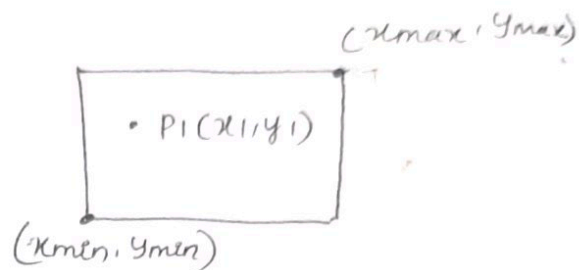 (xmax, ymax)
• P1(x1,y1)
(xmin, ymin)